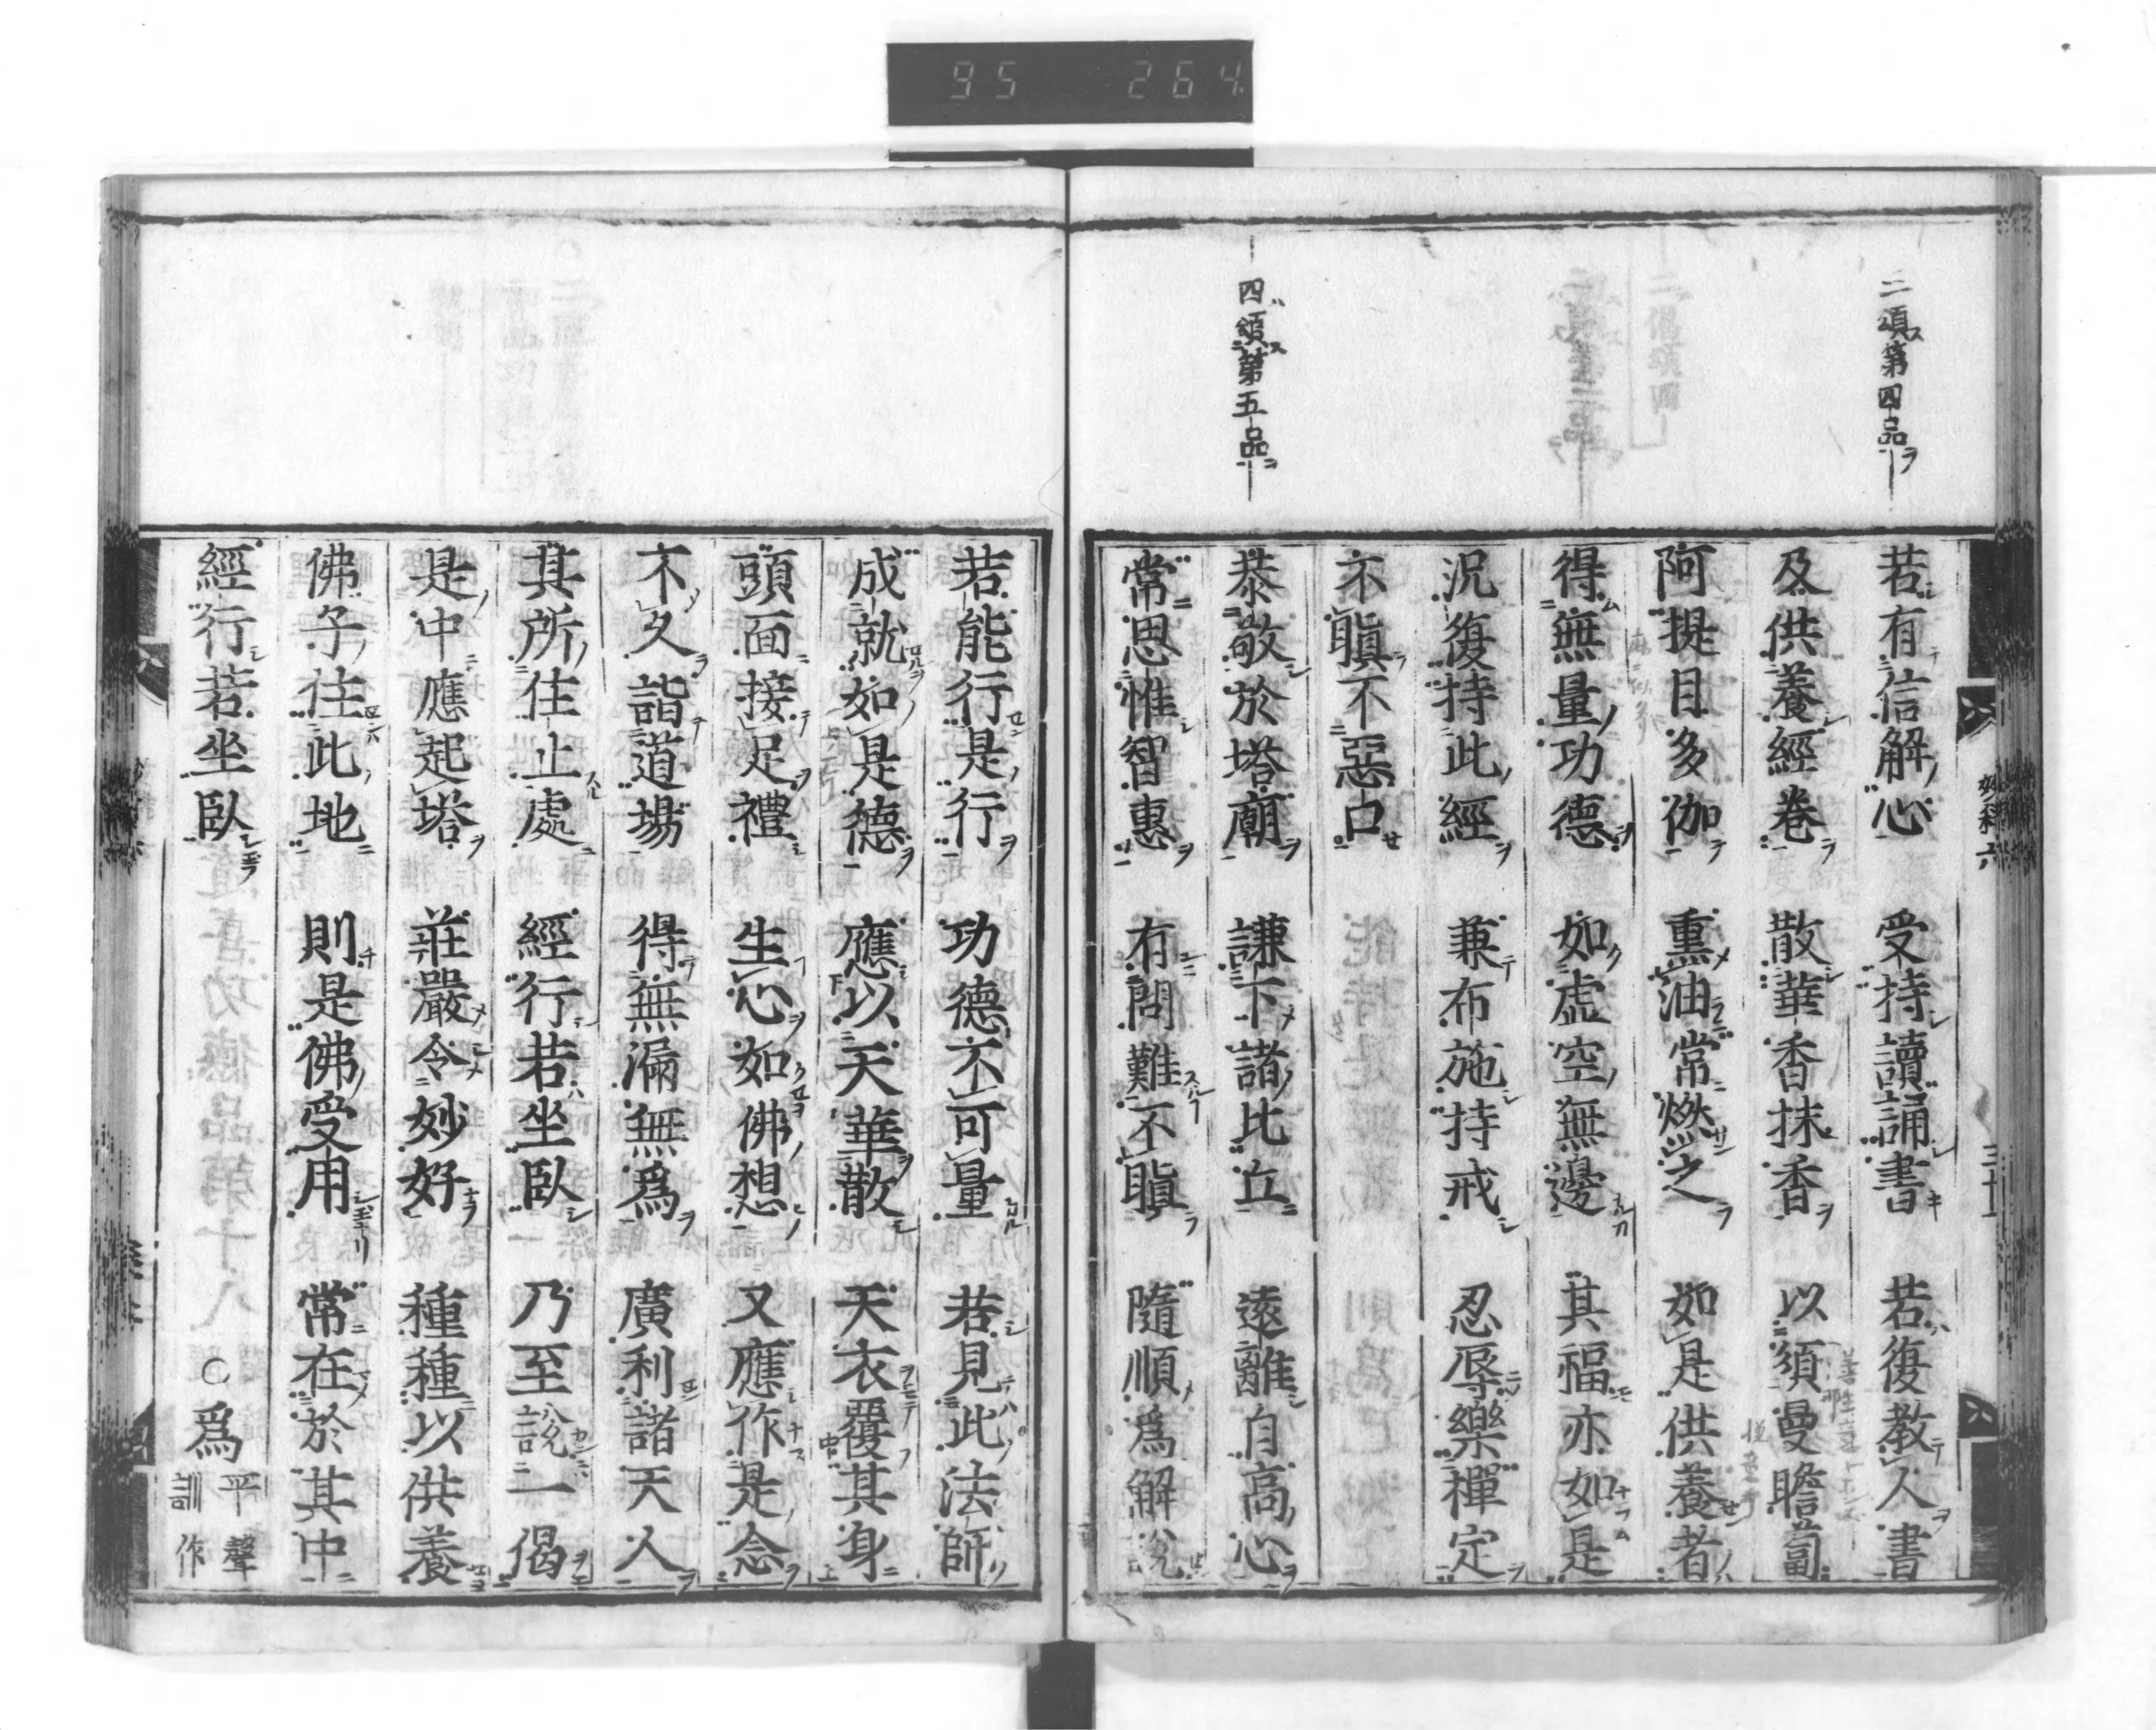 95 264
三頌第四品
若有信解心 受持讀誦書 若復教人書
及供養經卷 散華香抹香 以須曼瞻蔔
阿提目多伽 熏油常燃之 如是供養者
得無量功德 如虛空無邊 其福亦如是
況復持此經 兼布施持戒 忍辱樂禪定
不瞋不惡口
四頌第五品
恭敬於塔廟 謙下諸比丘 遠離自高心
常思惟智惠 有問難不瞋 隨順爲解說
若能行是行 功德不可量 若見此法師
成就如是德 應以天華散 天衣覆其身
頭面接足禮 生心如佛想 又應作是念
不久詣道場 得無漏無爲 廣利諸天人
其所住止處 經行若坐臥 乃至說一偈
是中應起塔 莊嚴令妙好 種種以供養
佛子住此地 則是佛受用 常在於其中
經行若坐臥 ○爲平聲訓作